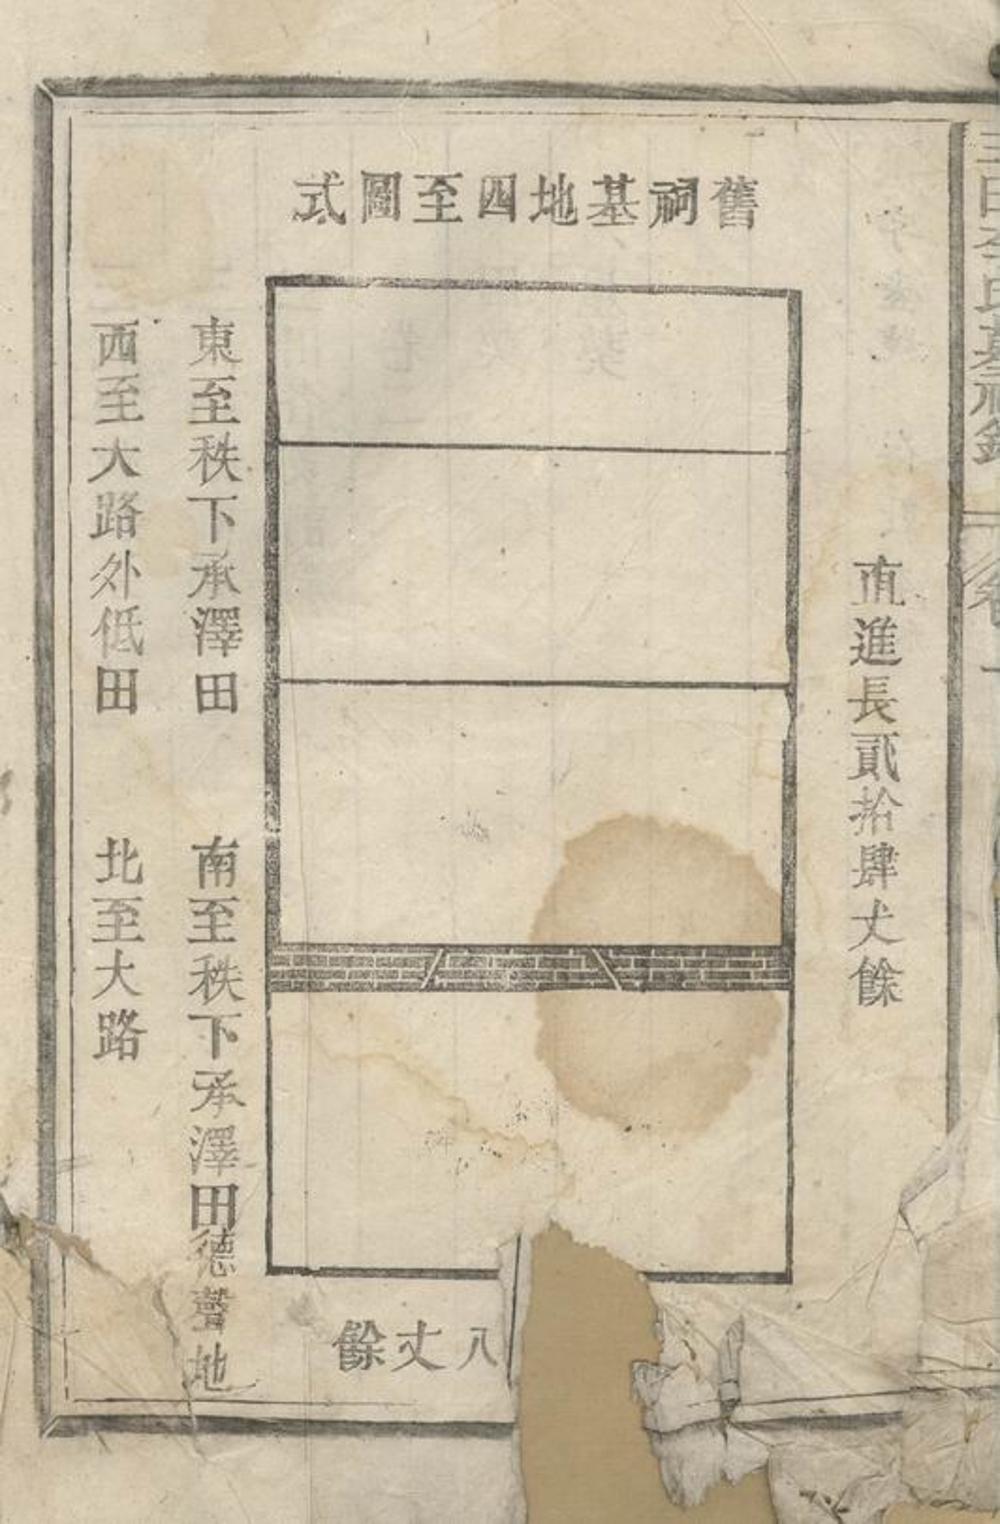 舊祠基地四至圖式
直進長貳拾肆丈餘
八丈餘
東至秩下承澤田
南至秩下承澤田德聲地
西至大路外低田
北至大路